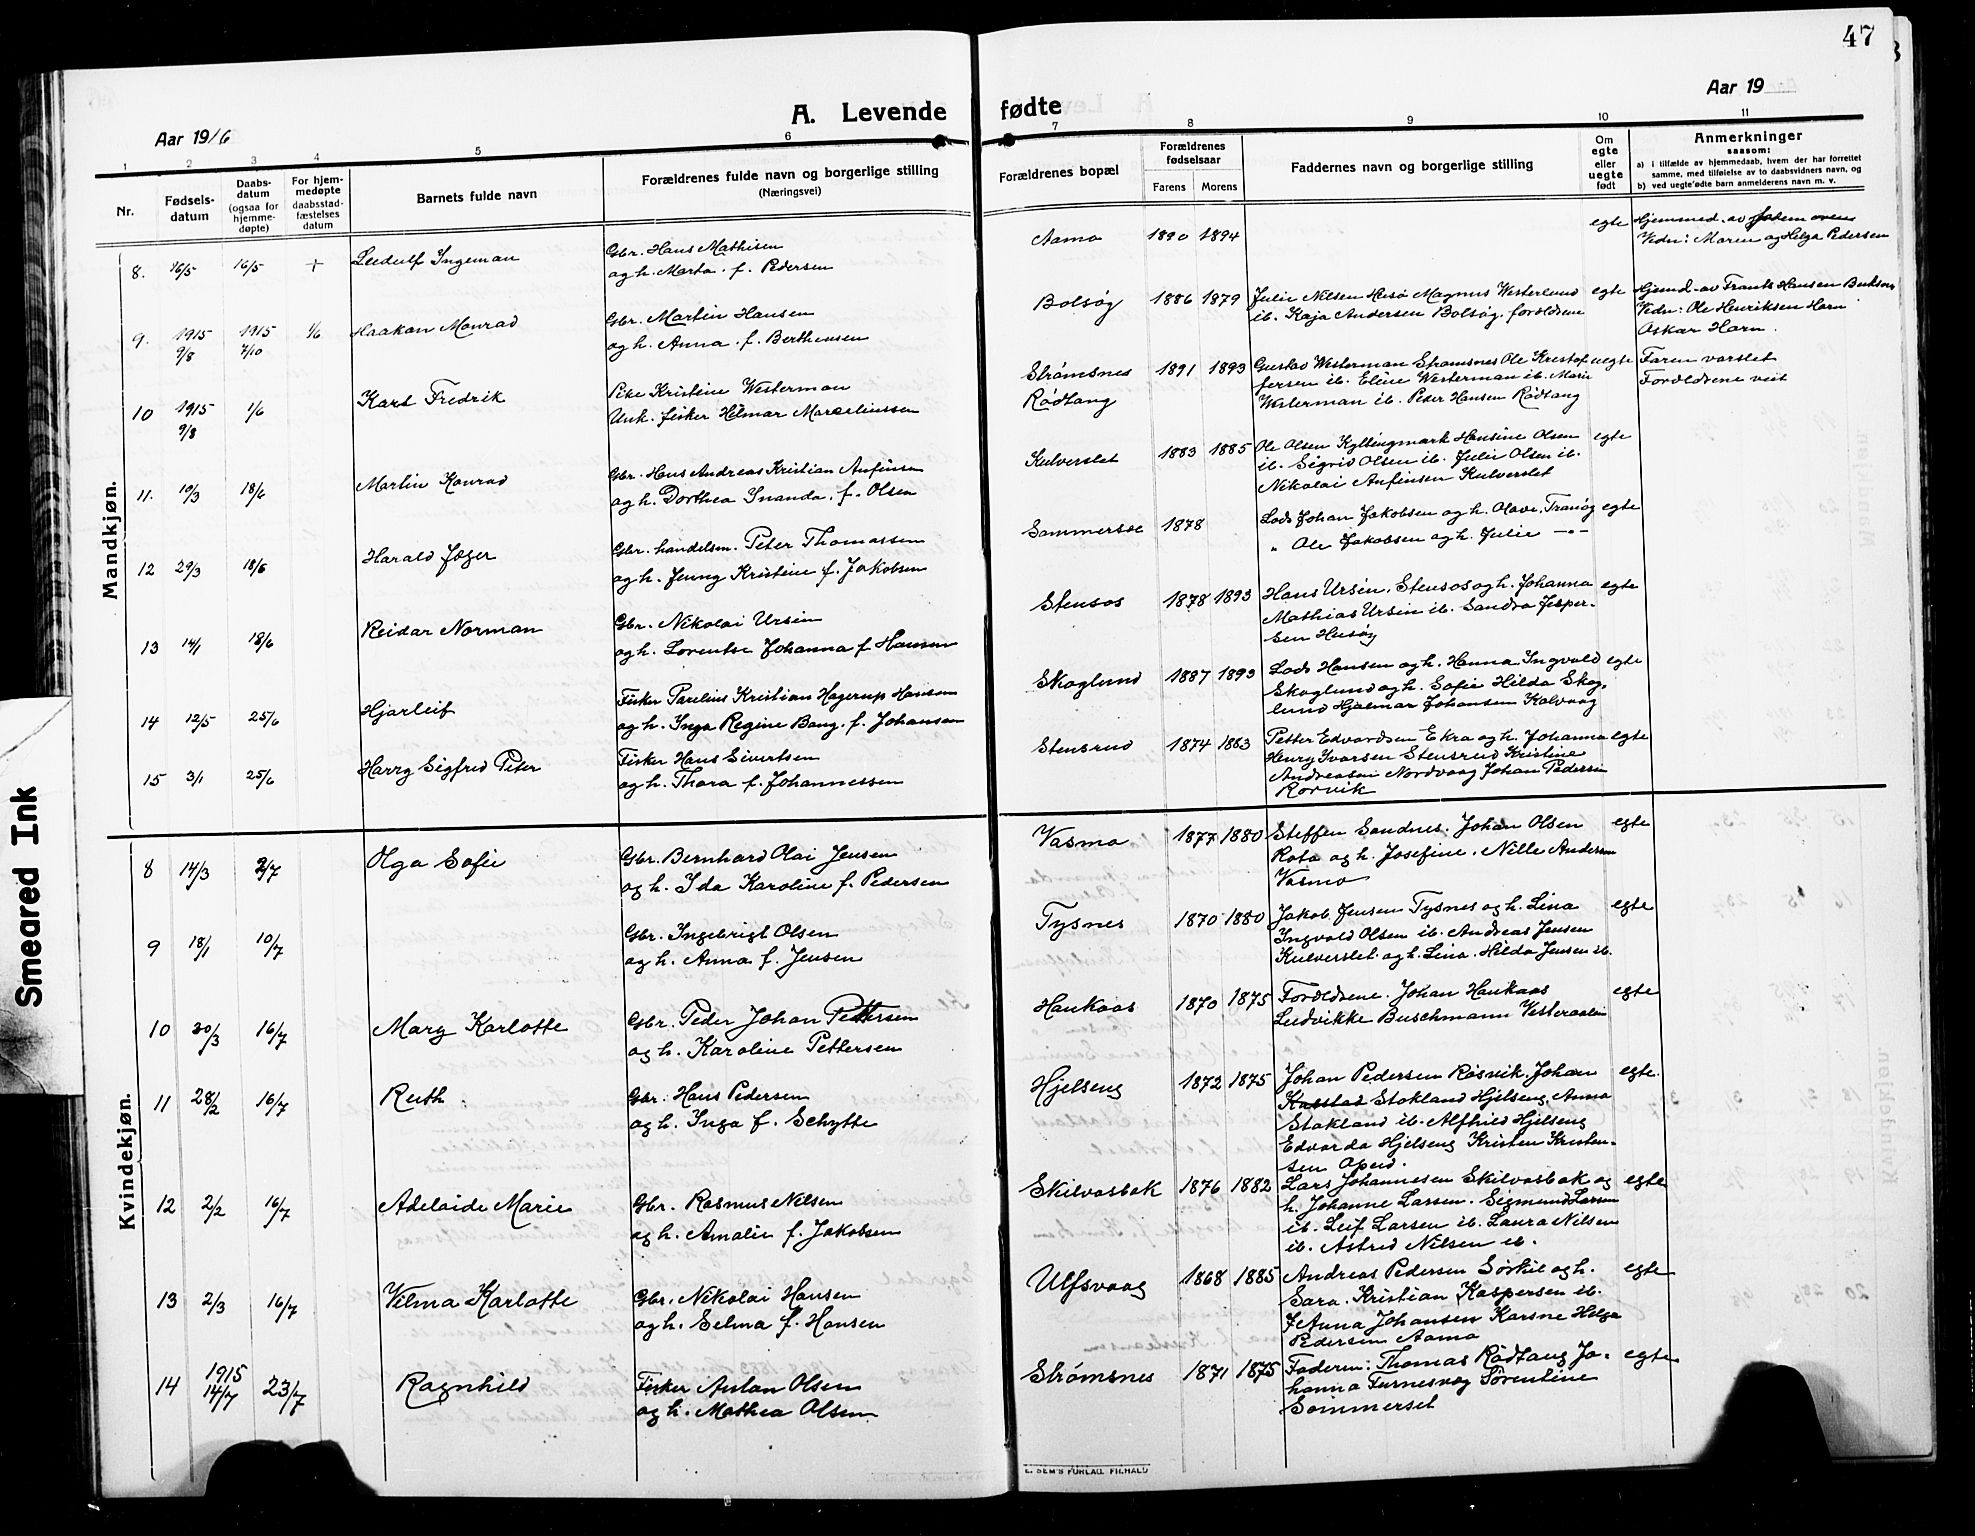 47
Aar 1916
A. Levende fødte
Aar 19
1 2 3 4 5 6 7 8 9 10 11
Nr.
Fødsels-
datum
Daabs-
datum
(ogsaa for
hjemme-
døpte)
For hjem-
medøpte
daabsstad-
fæstelses
datum
Barnets fulde navn
Forældrenes fulde navn og borgerlige stilling
(Næringsvei)
Forældrenes bopæl
Forældrenes
fødselsaar
Farens Morens
Faddernes navn og borgerlige stilling
Om
egte
eller
uegte
født
Anmerkninger
saasom:
a) i tilfælde av hjemmedaab, hvem der har forrettet
samme, med tilføielse av to daabsvidners navn, og
b) ved uegte fødte barn anmelderens navn m. v.
Mandkjøn.
8. 16/5 16/5 + Ludulf Ingeman
Gbr. Hans Mathisen
og h. Marta f. Pedersen
Aamo 1890 1894 egte
Hjemmed. av
Vidn: Maren og Helga Pedersen
9. 1915 9/8 1915 7/10 1/6 Haakon Monrad
Gbr. Martin Hansen
og h. Anna f. Berthensen
Bolsøy 1886 1879
Julie Nilsen Husø Magnus Westerlund
ib. Kaja Andersen Bolsøy, forældrene
egte
Hjemd. av Frants Hansen
Vidn: Ole Henriksen Horn
Oskar Horn.
10 1915 9/8 1/6 Karl Fredrik
Pike Kristine Westerman
Unk. fisker Hilmar Marcelinssen
Strømsnes
Rødtang
1891 1893
Gustav Westerman Strømsnes Ole Kristof
fersen ib. Eline Westerman ib. Marie
Westerman ib. Peder Hansen Rødtang
uegte
Faren varslet
Forældrene veit
11. 10/3 18/6 Martin Konrad
Gbr. Hans Andreas Kristian Anfinsen
og h. Dorthea Inanda f. Olsen
Kulverslet 1883 1885
Ole Olsen Kyllingmark Hansine Olsen
ib. Sigrid Olsen ib. Julie Olsen ib.
Nikolai Anfinsen Kulverslet
egte
12 29/3 18/6 Harald Jæger
Gbr. handelsm. Peter Thomassen
og h. Jenny Kristine f. Jakobsen
Sommersæ 1878
Lods Johan Jakobsen og h. Olave, Tranøy
" Ole Jakobsen og h. Julie —"—
egte
13 14/1 18/6 Reidar Norman
Gbr. Nikolai Ursin
og h. Lorentse Johanna f Hansen
Stensos 1878 1893
Hans Ursin, Stensos og h. Johanna
Mathias Ursin ib. Sandra Jesper-
sen Husøy
egte
14 12/5 25/6 Hjarleif
Fisker Parelius Kristian Hagerup Hansen
og h. Inga Regine Bang. f. Johansen
Skoglund 1887 1893
Lods Hansen og h. Hanna Ingvald
Skoglund og h. Sofie Hilda Skog-
lund Hjalmar Johansen Kalvaag
egte
15 3/1 25/6 Harry Sigfred Peter
Fisker Hans Sivertsen
og h. Thora f. Johannessen
Stensrud 1874 1883
Petter Edvardsen Ekra og h. Johanna
Henry Ivarsen Stensrud Kristine
Andreasen Nordvaag Johan Pedersen
Rørvik
egte
Kvindekjøn.
8 14/3 2/7 Olga Sofie
Gbr. Bernhard Olai Jensen
og h. Ida Karoline f. Pedersen
Vasmo 1877 1880
Steffen Sandnes. Johan Olsen
Rota og h. Josefine. Nille Andersen
Vasmo
egte
9 18/1 10/7
Gbr. Ingebrigt Olsen
og h. Anna f. Jensen
Tysnes 1870 1880
Jakob Jensen Tysnes og h. Lina
Ingvald Olsen ib. Andreas Jensen
Kulverslet og h. Lina. Hilda Jensen ib.
egte
10 30/3 16/7 Mary Karlotte
Gbr. Peder Johan Pettersen
og h. Karoline Pettersen
Haukaas 1870 1875
Forældrene. Johan Haukaas
Ludvikke Buschmann Vesteraalen
egte
11 28/2 16/7 Ruth
Gbr. Hans Pedersen
og h. Inga f. Schytte
Hjelseng 1872 1875
Johan Pedersen Røsvik, Johan
Stokland Hjelseng, Anna
Stokland ib. Alfhild Hjelseng
Edvarda Hjelseng Kristen Kristen-
sen Opeid.
egte.
12 2/2 16/7 Adelaide Marie
Gbr. Rasmus Nilsen
og h. Amalie f. Jakobsen
Skilvasbak 1876 1882
Lars Johannesen Skilvasbak og
h. Johanne Larsen. Sigmund Larsen
ib. Leif Larsen ib. Laura Nilsen
ib. Astrid Nilsen ib.
egte
13 2/3 16/7 Vilma Karlotte
Gbr. Nikolai Hansen
og h. Selma f. Hansen
Ulfsvaag 1868 1885
Andreas Pedersen Sørkil og h.
Sara. Kristian Kaspersen ib.
Anna Johansen Karsne Helga
Pedersen Aamo
egte
14 1915 14/7 23/7 Ragnhild
Fisker Anton Olsen
og h. Mathea Olsen
Strømsnes 1871 1875
Faderen: Thomas Rødtang Jo-
hanna Furnesvåg Sørentine
Sommerset
egte
E. SEM'S FORLAG, FR.HALD
Smeared Ink